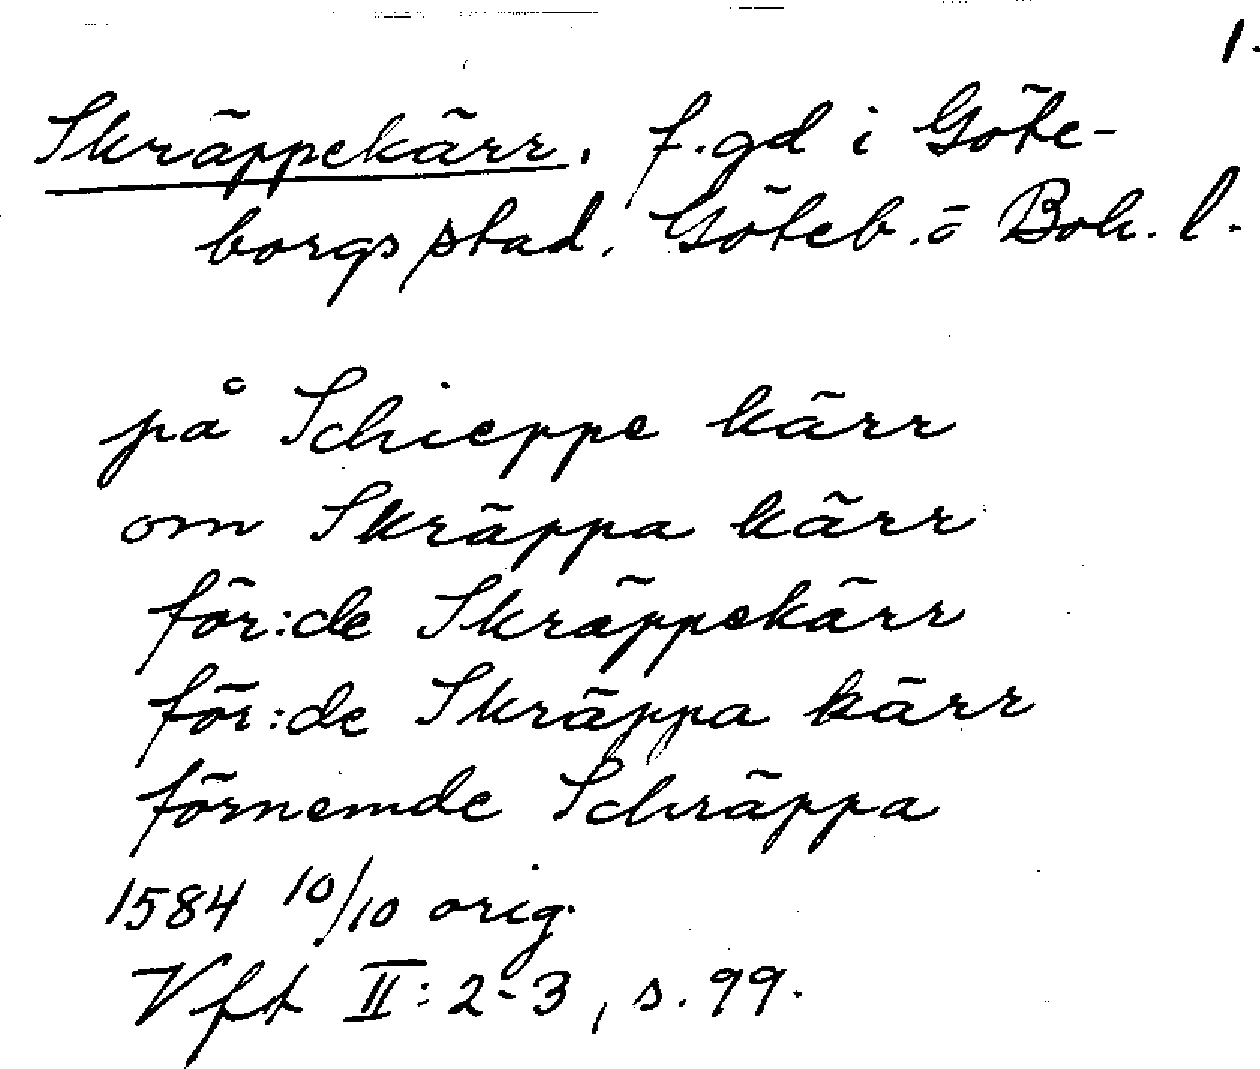 1.
Skräppekärr. f.gd i Göte-
borgs stad. Göteb. o Boh. l.
på Schieppe kärr
om Skräppa kärr
för:de Skräppekärr
för:de Skräppa kärr
förnemde Schräppa
1584 10/10 orig.
Vft II:2-3, s. 99.